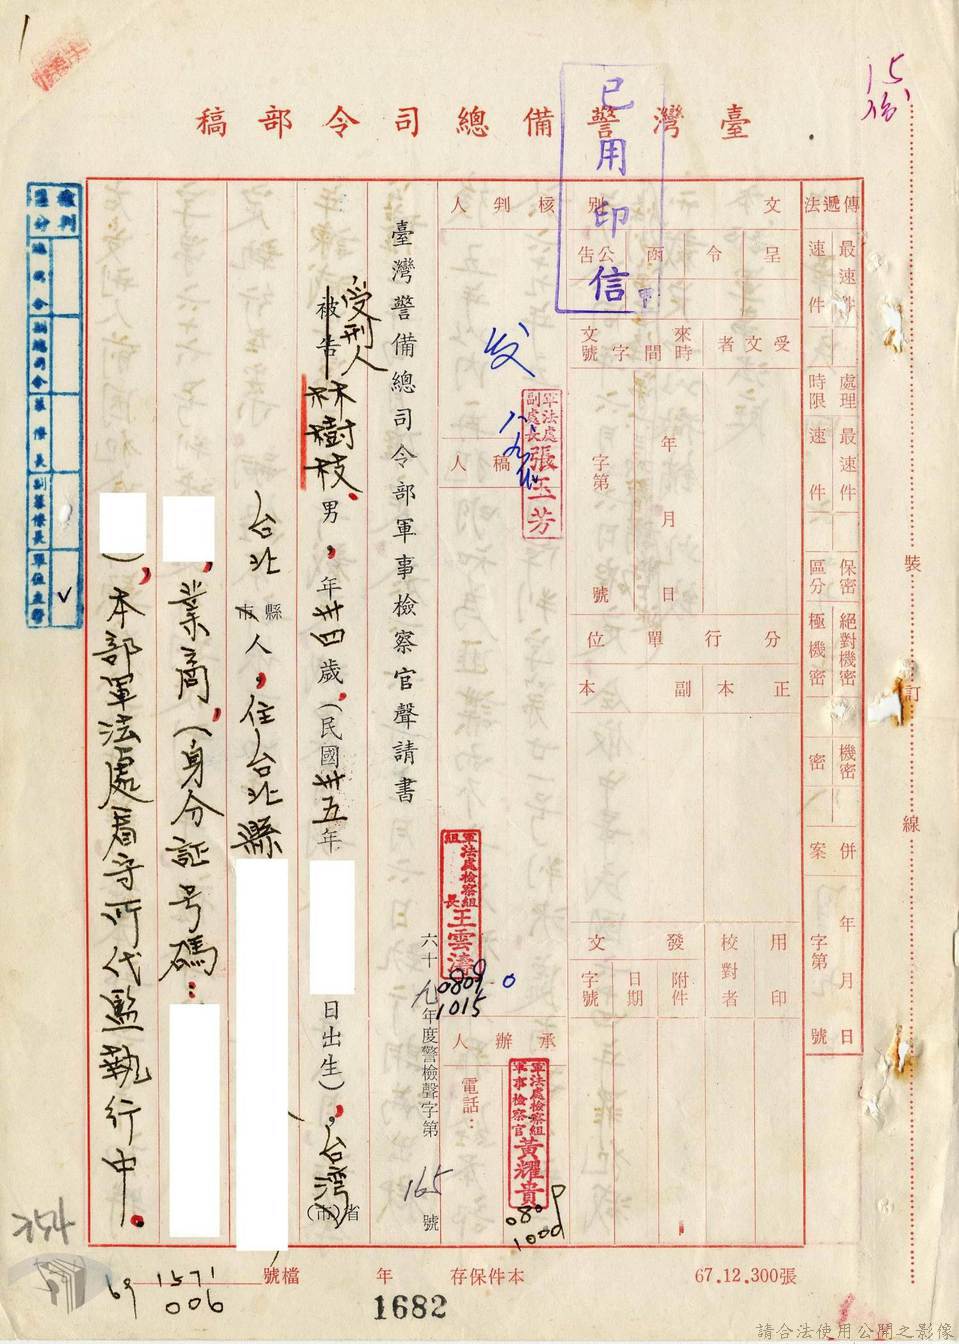 臺灣警備總司令部稿
已用印信
15份
傳遞法
最速件
速件
處理時限
最速件
速件
保密區分
絕對機密
極機密
機密
密
併案
年月日
字第
號
裝
訂
線
文別
呈
令
函
公告
核判人
受文者
來文
時間
字號
年
月
日
字第
號
分行單位
正本
副本
用印
校對者
發文
附件
日期
字號
发
八、九
軍法處副處長張玉芳
稿人
軍法處檢察組組長王雲濤
0809
1015
承辦人
電話：
軍法處檢察組軍事檢察官黃耀貴
0809
1000
臺灣警備總司令部軍事檢察官聲請書
六十九年度警檢聲字第165號
被告
受刑人
林樹枝，男，年卅四歲，（民國卅五年
日出生），台灣省（市）
台北縣市人，住台北縣
，業商，（身分証号碼：
），本部軍法處看守所代監執行中。
裁判區分
總司令
副總司令
參謀長
副參謀長
單位主官
✓
254
69
1571
006
檔號
年
本件保存
67.12.300張
1682
請合法使用公開之影像